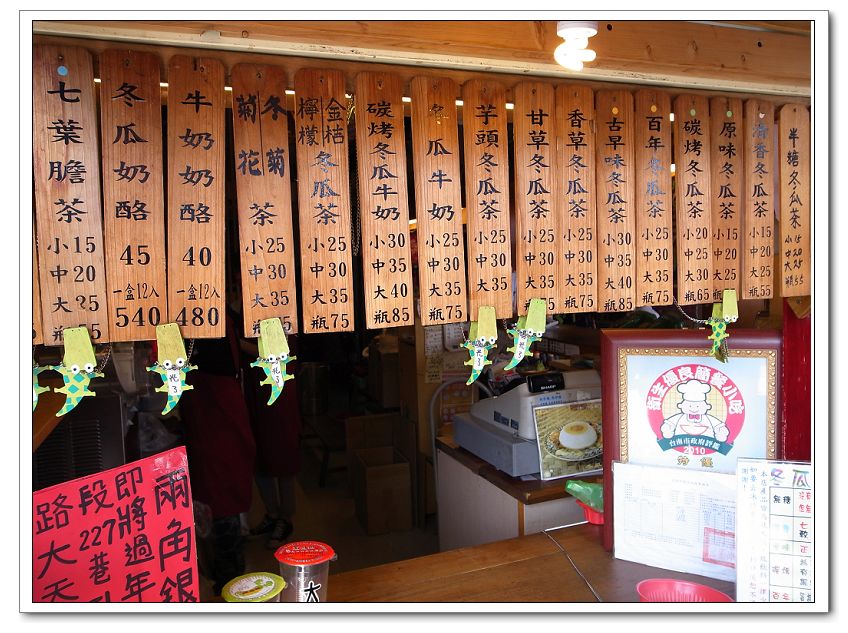 七葉膽茶
小15
中20
大25
瓶75
冬瓜奶酪
45
一盒12入
540
牛奶奶酪
40
一盒12入
480
冬菊
菊花
茶
小25
中30
大35
瓶75
金桔
檸檬
冬瓜茶
小25
中30
大35
瓶75
碳烤冬瓜牛奶
小30
中35
大40
瓶85
冬瓜牛奶
小25
中30
大35
瓶75
芋頭冬瓜茶
小25
中30
大35
瓶75
甘草冬瓜茶
小25
中30
大35
瓶75
香草冬瓜茶
小25
中30
大35
瓶75
古早味冬瓜茶
小30
中35
大40
瓶85
百年冬瓜茶
小25
中30
大35
瓶75
碳烤冬瓜茶
小20
中25
大30
瓶65
原味冬瓜茶
小15
中20
大25
清香冬瓜茶
小15
中20
大25
瓶55
半糖冬瓜茶
小15
中20
大25
瓶55
兩角銀
即將過年
段227巷
路大天
衛生優良簡餐小吃
台南市政府評鑑
2010
特優
冬瓜
無糖
大
SHARP